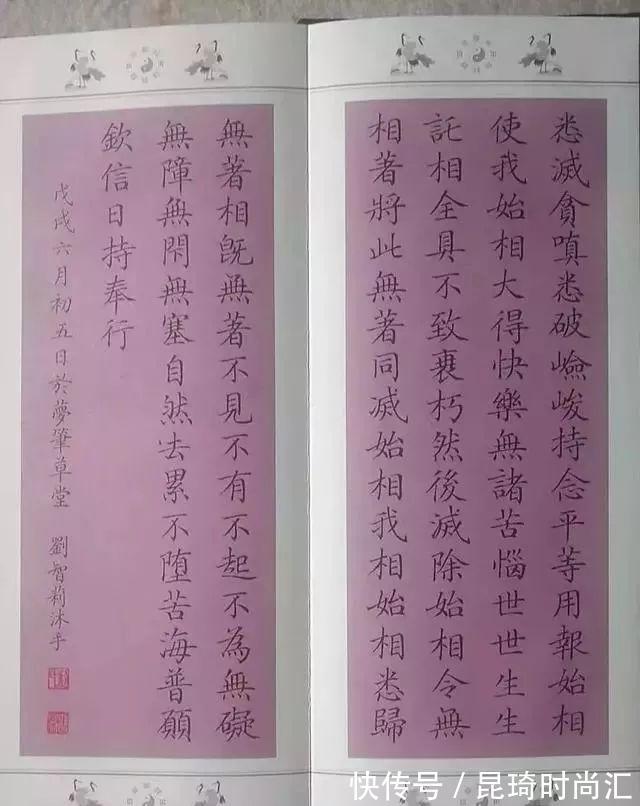 悉滅貪嗔悉破嶮峻持念平等用報始相
使我始相大得快樂無諸苦惱世世生生
託相全具不致衰朽然後滅除始相令無
相著將此無著同滅始相我相始相悉歸
無著相既無著不見不有不起不為無礙
無障無閑無塞自然去累不墮苦海普願
欽信日持奉行
戊戌六月初五日於夢筆草堂 劉智莉沐手
快传号/昆琦时尚汇